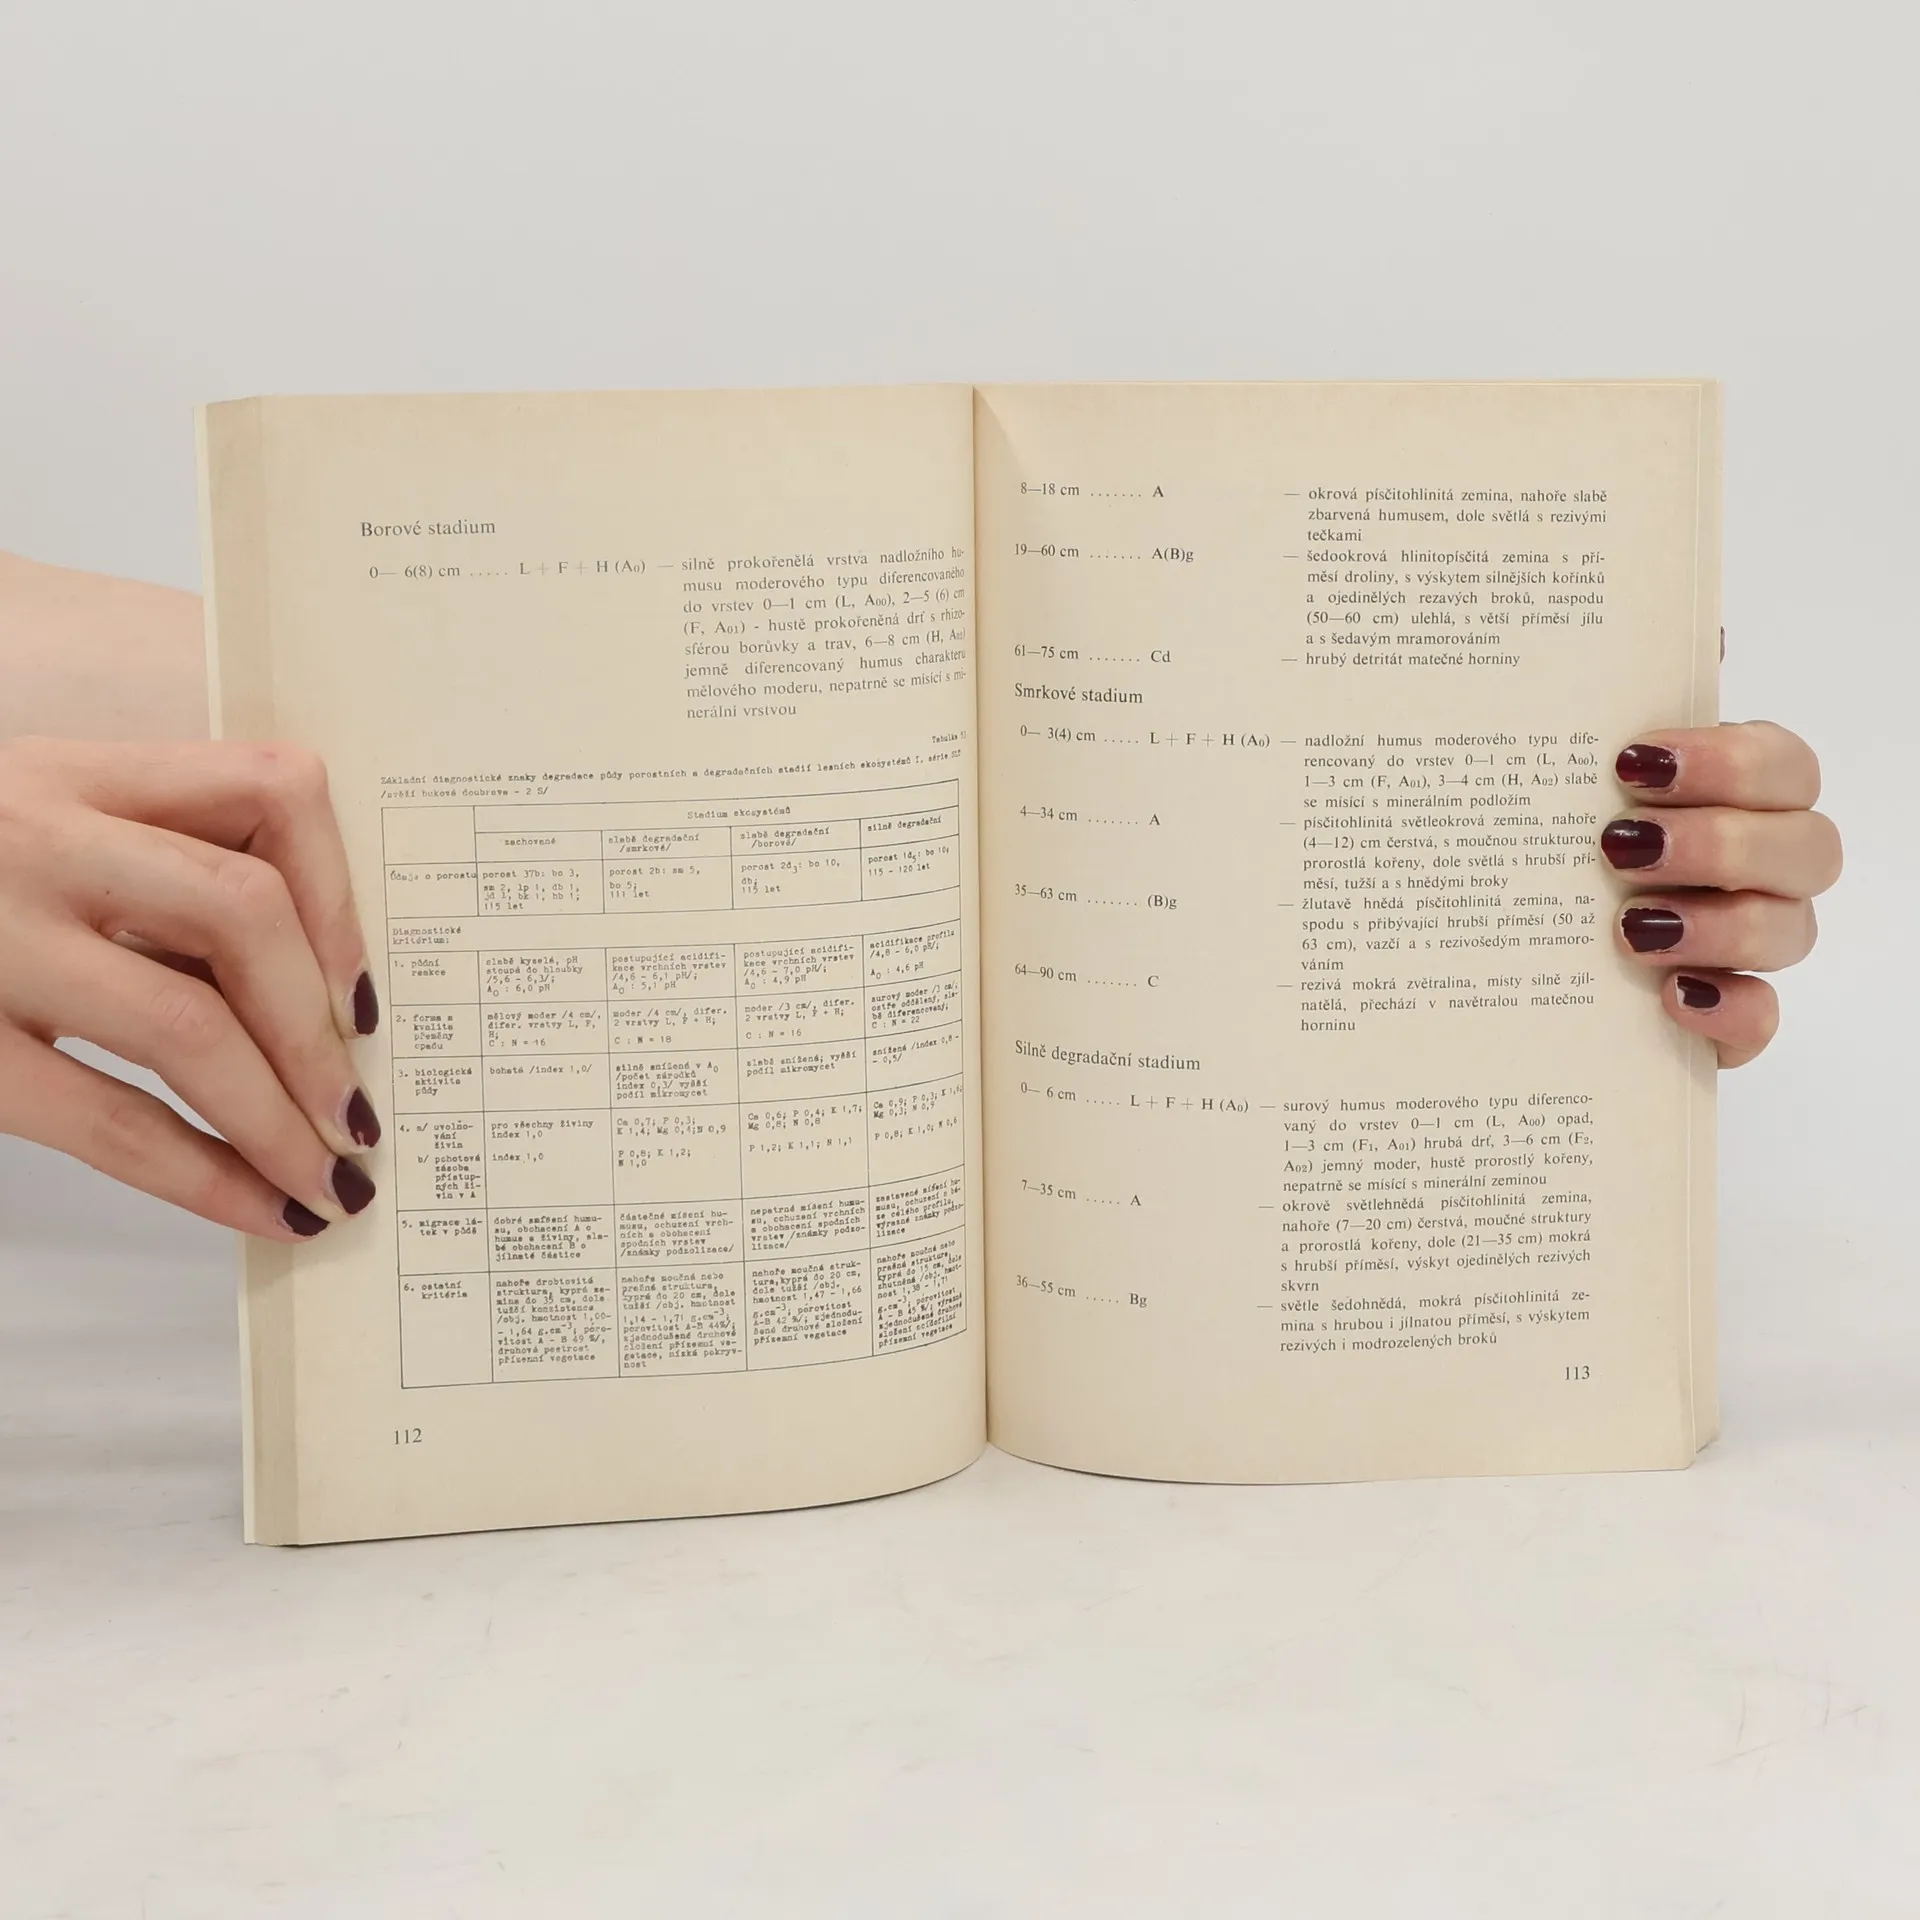 Borové stadium
0— 6(8) cm ..... L + F + H (A₀) — silně prokořenělá vrstva nadložního hu-
musu moderového typu diferencovaného
do vrstev 0—1 cm (L, A₀₀), 2—5 (6) cm
(F, A₀₁) - hustě prokořeněná drť s rhizo-
sférou borůvky a trav, 6—8 cm (H, A₀₂)
jemně diferencovaný humus charakteru
mělového moderu, nepatrně se mísící s mi-
nerální vrstvou
Tabulka
Základní diagnostické znaky degradace půdy porostních a degradačních stadií lesních ekosystémů I. série SLT
/svěží buková doubrava - 2 S/
Stadium ekosystémů
zachované
slabě degradační
/smrkové/
slabě degradační
/borové/
silně degradační
Údaje o porostu
porost 37b: bo 3,
sm 2, lp 1, db 1,
jd 1, bk 1, hb 1;
115 let
porost 2b: sm 5,
bo 5;
111 let
porost 2d₃: bo 10,
db;
115 let
porost 1d₅: bo 10;
115 - 120 let
Diagnostické
kritérium:
1. půdní
reakce
slabě kyselá, pH
stoupá do hloubky
/5,6 - 6,3/;
A₀ : 6,0 pH
postupující acidifi-
kace vrchních vrstev
/4,6 - 6,1 pH/;
A₀ : 5,1 pH
postupující acidifi-
kace vrchních vrstev
/4,6 - 7,0 pH/;
A₀ : 4,9 pH
acidifikace profilu
/4,8 - 6,0 pH/;
A₀ : 4,6 pH
2. forma a
kvalita
přeměny
opadu
mělový moder /4 cm/,
difer. vrstvy L, F,
H;
C : N = 16
moder /4 cm/, difer.
2 vrstvy L, F + H;
C : N = 18
moder /3 cm/, difer.
2 vrstvy L, F + H;
C : N = 16
surový moder /3 cm/;
ostře oddělený, sla-
bě diferencovaný;
C : N = 22
3. biologická
aktivita
půdy
bohatá /index 1,0/
silně snížená v A₀
/počet zárodků
index 0,3/ vyšší
podíl mikromycet
slabě snížená; vyšší
podíl mikromycet
snížená /index 0,8 -
- 0,5/
4. a/ uvolňo-
vání
živin
pro všechny živiny
index 1,0
Ca 0,7; P 0,3;
K 1,4; Mg 0,4; N 0,9
Ca 0,6; P 0,4; K 1,7;
Mg 0,8; N 0,8
Ca 0,9; P 0,3; K 1,6;
Mg 0,3; N 0,9
b/ pohotová
zásoba
přístup-
ných ži-
vin v A
index 1,0
P 0,8; K 1,2;
N 1,0
P 1,2; K 1,1; N 1,1
P 0,8; K 1,0; N 0,6
5. migrace lá-
tek v půdě
dobré smísení humu-
su, obohacení A o
humus a živiny, sla-
bé obohacení B o
jílnaté částice
částečné mísení hu-
musu, ochuzení vrch-
ních a obohacení
spodních vrstev
/známky podzolizace/
nepatrné mísení humu-
su, ochuzení vrchních
a obohacení spodních
vrstev /známky podzo-
lizace/
zastavené mísení hu-
musu, ochuzení o bá-
ze celého profilu,
výrazné známky podzo-
lizace
6. ostatní
kritéria
nahoře drobtovitá
struktura, kyprá ze-
mina do 35 cm, dole
tužší konzistence
/obj. hmotnost 1,00-
- 1,64 g.cm⁻³; póro-
vitost A - B 49 %/,
druhová pestrost
přízemní vegetace
nahoře moučná nebo
prašná struktura,
kyprá do 20 cm, dole
tužší /obj. hmotnost
1,14 - 1,71 g.cm⁻³,
porovitost A-B 44%/;
zjednodušené druhové
složení přízemní ve-
getace, nízká pokryv-
nost
nahoře moučná struk-
tura, kyprá do 20 cm,
dole tužší /obj.
hmotnost 1,47 - 1,66
g.cm⁻³; pórovitost
A-B 42 %/; zjednodu-
šené druhové složení
přízemní vegetace
nahoře moučná nebo
prašná struktura,
kyprá do 15 cm, dole
zhutněná /obj. hmot-
nost 1,38 - 1,71
g.cm⁻³; pórovitost
A - B 45 %/; výrazně
zjednodušené druhové
složení acidofilní
přízemní vegetace
112
8—18 cm ....... A — okrová písčitohlinitá zemina, nahoře slabě
zbarvená humusem, dole světlá s rezivými
tečkami
19—60 cm ....... A(B)g — šedookrová hlinitopísčitá zemina s pří-
měsí droliny, s výskytem silnějších kořínků
a ojedinělých rezavých broků, naspodu
(50—60 cm) ulehlá, s větší příměsí jílu
a s šedavým mramorováním
61—75 cm ....... Cd — hrubý detritát matečné horniny
Smrkové stadium
0— 3(4) cm ..... L + F + H (A₀) — nadložní humus moderového typu dife-
rencovaný do vrstev 0—1 cm (L, A₀₀),
1—3 cm (F, A₀₁), 3—4 cm (H, A₀₂) slabě
se mísící s minerálním podložím
4—34 cm ....... A — písčitohlinitá světleokrová zemina, nahoře
(4—12) cm čerstvá, s moučnou strukturou,
prorostlá kořeny, dole světlá s hrubší pří-
měsí, tužší a s hnědými broky
35—63 cm ....... (B)g — žlutavě hnědá písčitohlinitá zemina, na-
spodu s přibývající hrubší příměsí (50 až
63 cm), vazčí a s rezivošedým mramoro-
váním
64—90 cm ....... C — rezivá mokrá zvětralina, místy silně zjíl-
natělá, přechází v navětralou matečnou
horninu
Silně degradační stadium
0— 6 cm ..... L + F + H (A₀) — surový humus moderového typu diferenco-
vaný do vrstev 0—1 cm (L, A₀₀) opad,
1—3 cm (F₁, A₀₁) hrubá drť, 3—6 cm (F₂,
A₀₂) jemný moder, hustě prorostlý kořeny,
nepatrně se mísící s minerální zeminou
7—35 cm ..... A — okrově světlehnědá písčitohlinitá zemina,
nahoře (7—20 cm) čerstvá, moučné struktury
a prorostlá kořeny, dole (21—35 cm) mokrá
s hrubší příměsí, výskyt ojedinělých rezivých
skvrn
36—55 cm ..... Bg — světle šedohnědá, mokrá písčitohlinitá ze-
mina s hrubou i jílnatou příměsí, s výskytem
rezivých i modrozelených broků
113